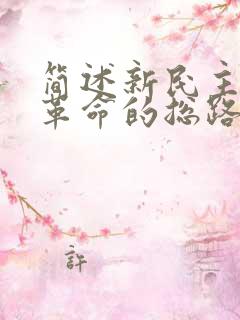 简述新民主
革命的总路
許